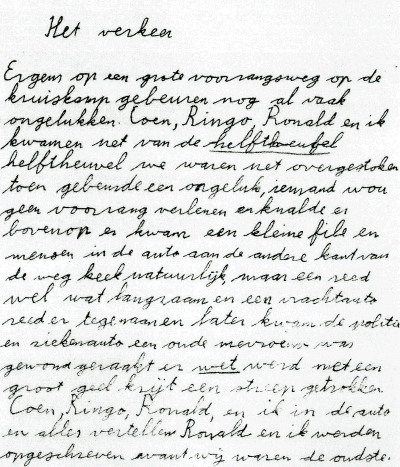 Het verkeer
Ergens op een grote voorrangsweg op de
kruiskamp gebeuren nog al vaak
ongelukken. Coen, Ringo, Ronald en ik
kwamen net van de helftheufel
helftheuvel we waren net overgestoken
toen gebeurde een ongeluk, iemand wou
geen voorrang verlenen en knalde er
bovenop er kwam een kleine file en
mensen in de auto aan de andere kant van
de weg keek natuurlijk maar een reed
wel wat langzaam en een vrachtauto
reed er tegenaan en later kwam de politie
en ziekenauto een oude mevrouw was
gewond geraakt er wet werd met een
groot geel krijt een streep getrokken
Coen, Ringo, Ronald, en ik in de auto
en alles vertellen Ronald en ik werden
opgeschreven want wij waren de oudste.